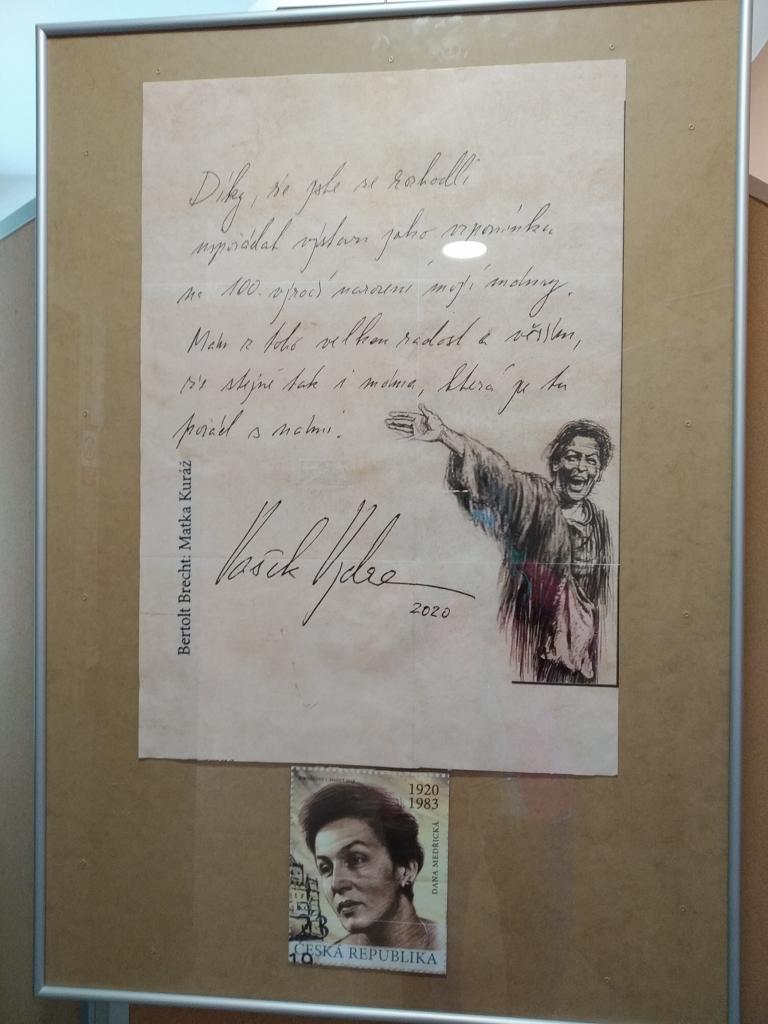 Díky, že jste se rozhodli
uspořádat výstavu jako vzpomínku
na 100. výročí narození mojí mámy.
Mám z toho velkou radost a věřím,
že stejně tak i máma, která je tu
pořád s námi.
Vašek Vydra
2020
Bertolt Brecht: Matka Kuráž
1920
1983
DANA MEDŘICKÁ
ČESKÁ REPUBLIKA
19